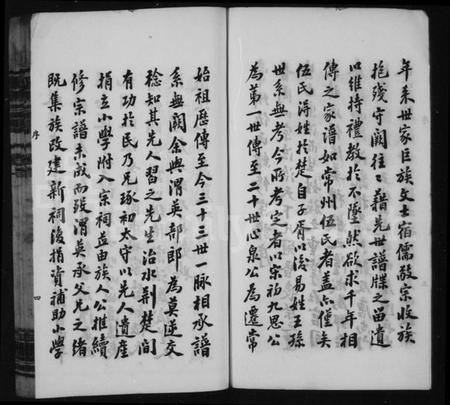 年來世家巨族文士宿儒敬宗收族
抱殘守闕往往藉先世譜牒之留遺
以維持禮教於不墜然欲求千年相
傳之家譜如常州伍氏者蓋亦僅矣
伍氏得姓於楚自子胥以後易姓王孫
世系無考今所考定者以宋初九思公
為第一世傳至二十世心泉公為遷常
始祖歷傳至今三十三世一脈相承譜
系無闕余與渭英部郎為莫逆交
稔知其先人習之先生治水荆楚間
有功於民乃兄琢初太守以先人遺產
捐立小學附入宗祠並由族人公推續
修宗譜未蕆而歿渭英承父兄之緒
既集族改建新祠後捐資補助小學
序
四